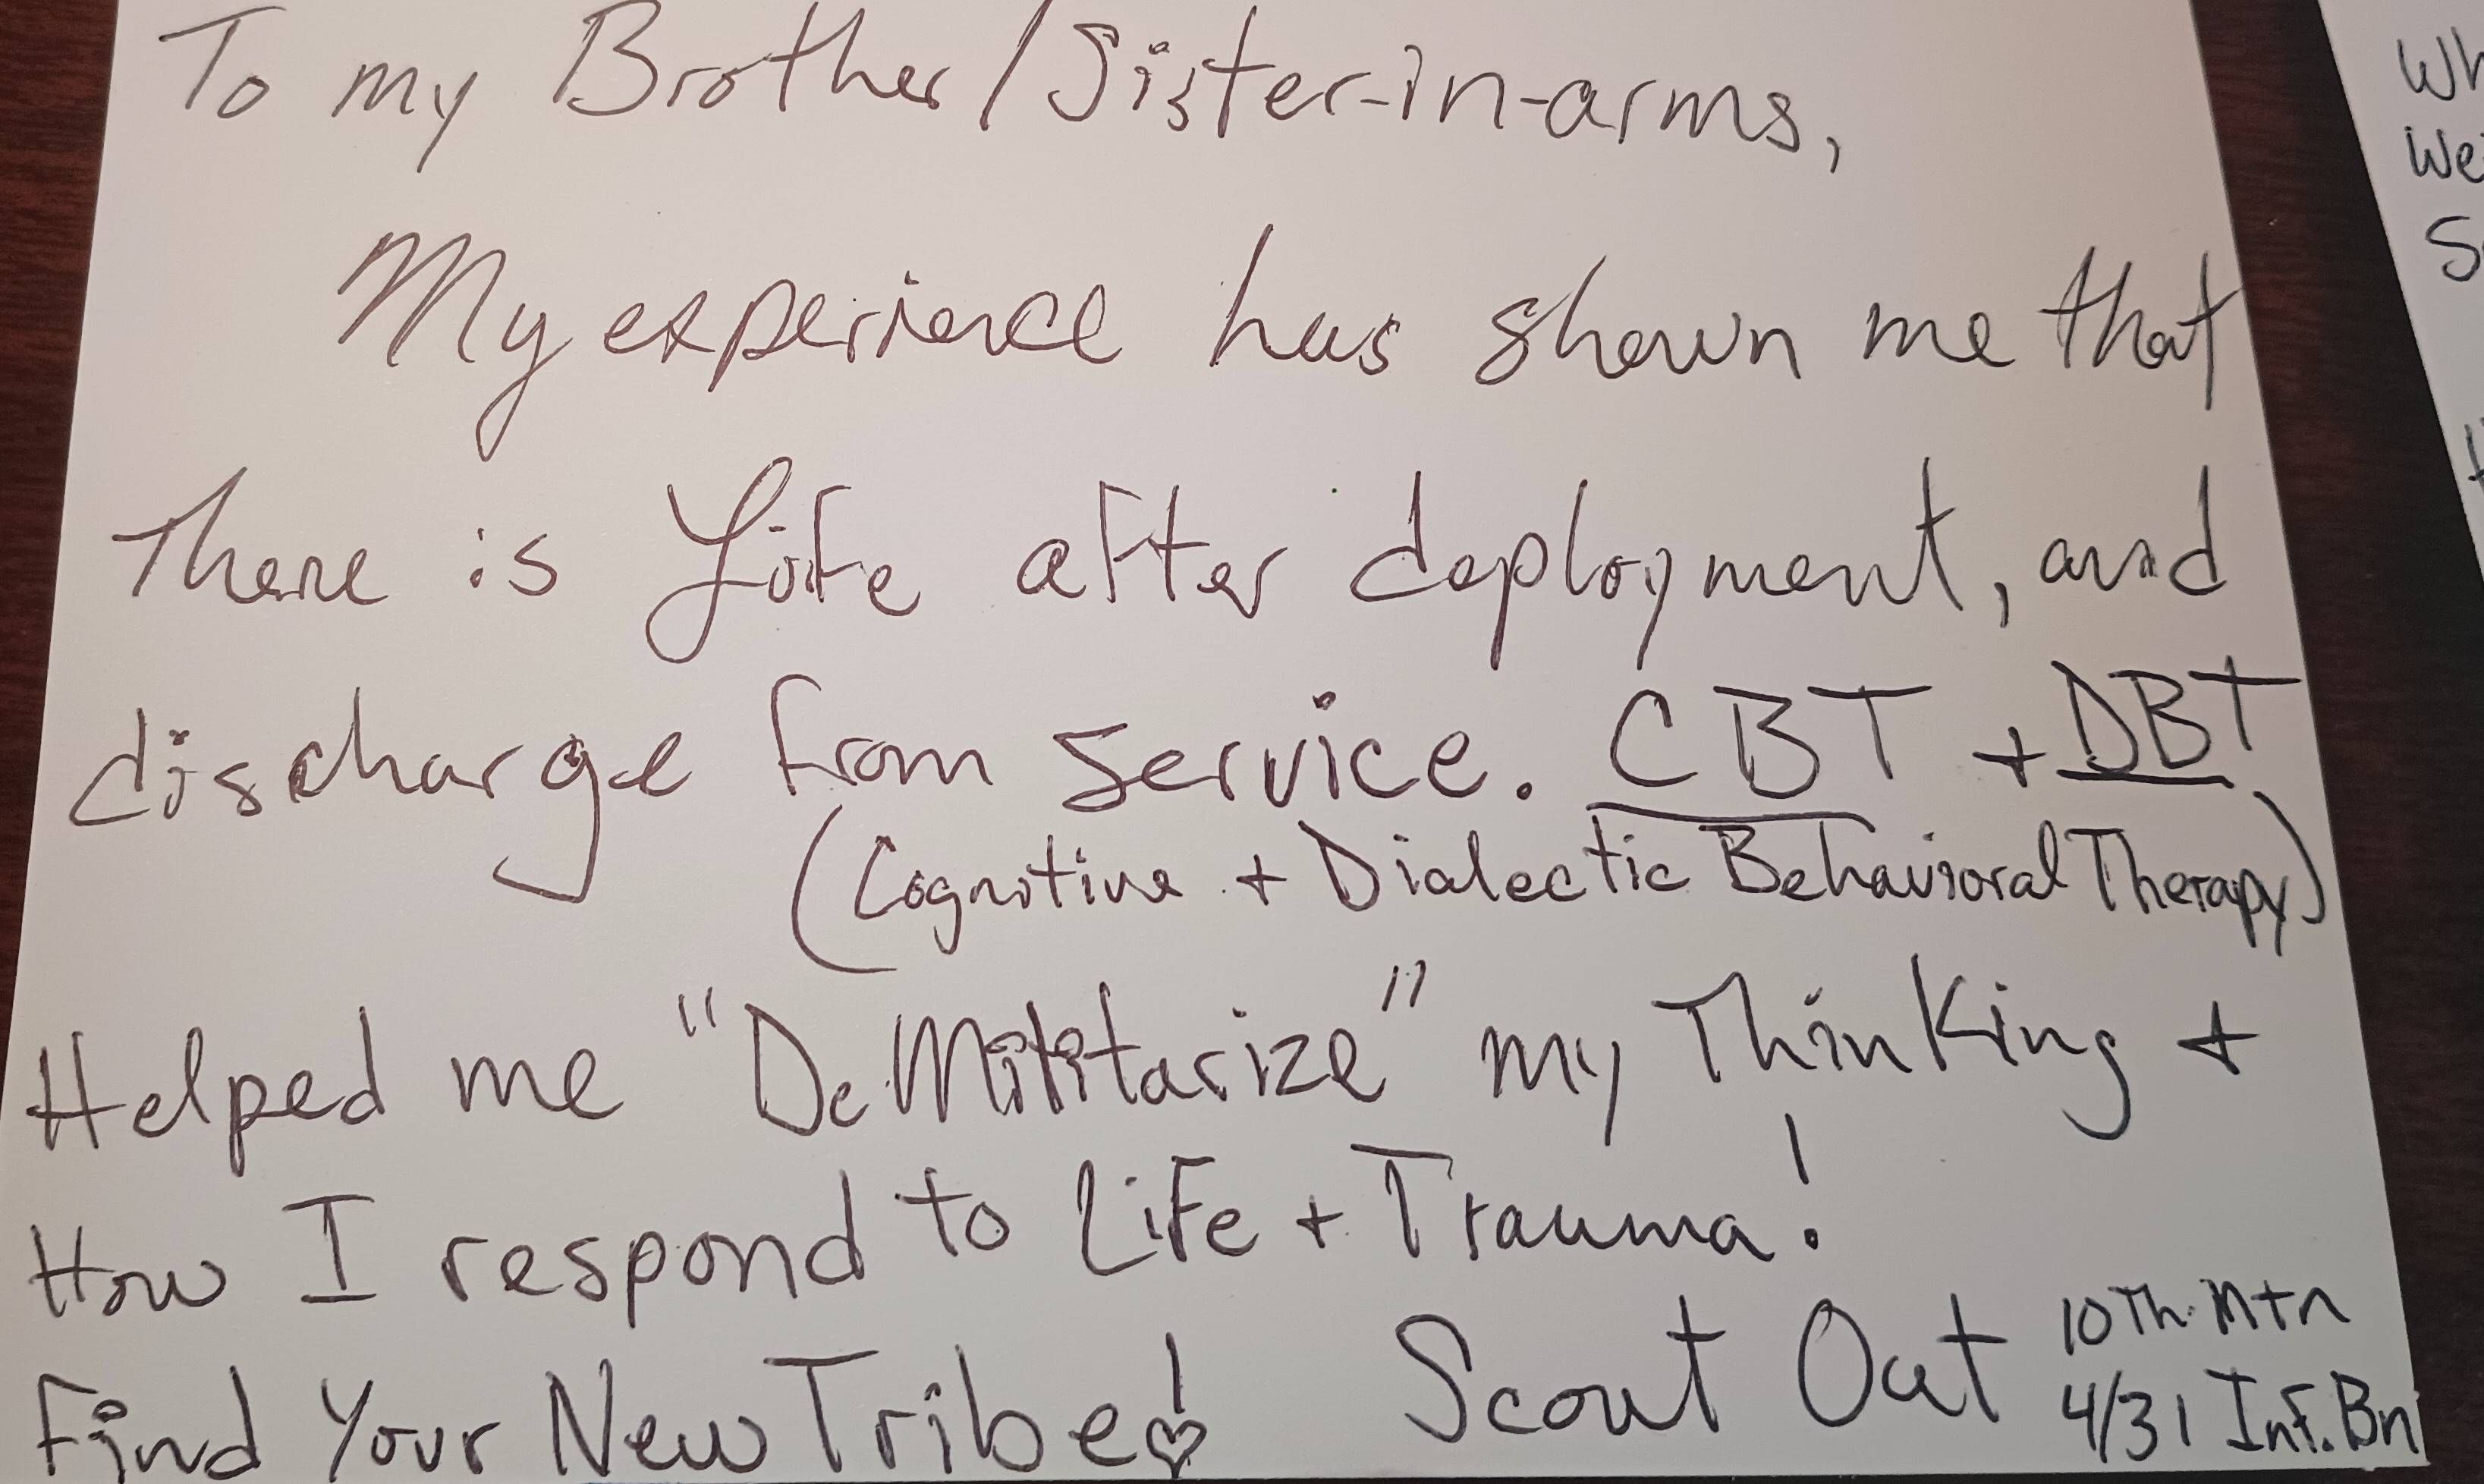 To my Brother/Sister-in-arms,
My experience has shown me that
There is Life after deployment, and
discharge from service. CBT + DBT
(Cognitive + Dialectic Behavioral Therapy)
Helped me "DeMilitarize" my Thinking +
How I respond to Life + Trauma!
Find Your New Tribe!
Scout Out
10Th Mtn
4/31 Inf. Bn